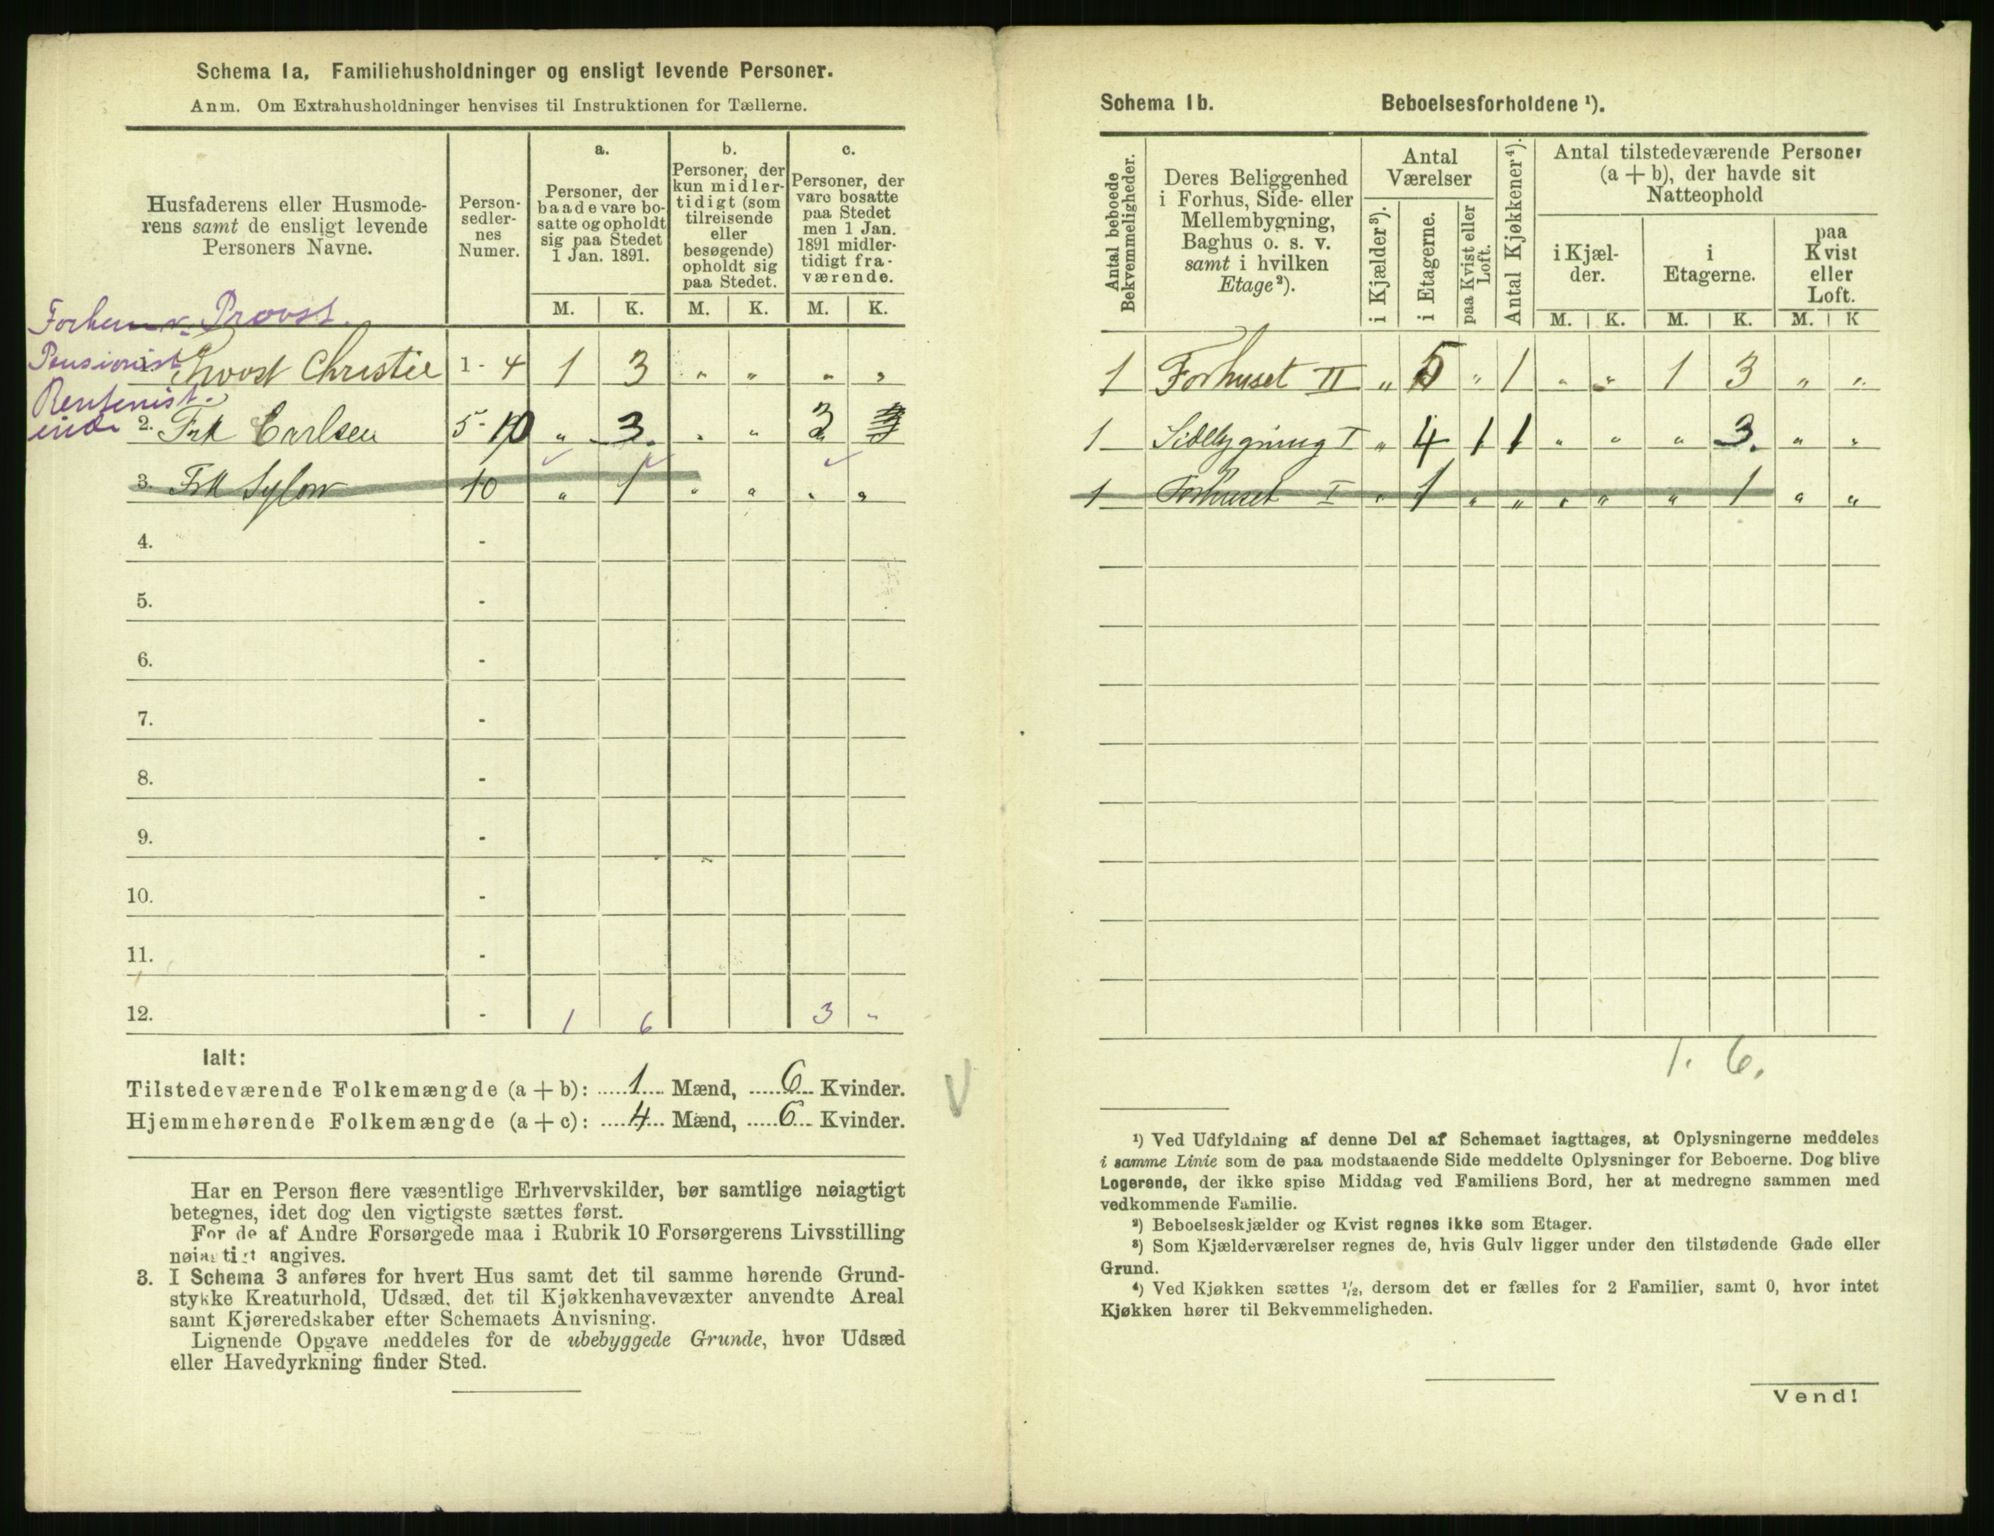 Schema 1a, Familiehusholdninger og ensligt levende Personer.
Anm. Om Extrahusholdninger henvises til Instruktionen for Tællerne.
Husfaderens eller Husmoderens samt de ensligt levende Personers Navne.
Personsedlernes Numer.
a.
Personer, der baade vare bosatte og opholdt sig paa Stedet 1 Jan. 1891.
b.
Personer, der kun midlertidigt (som tilreisende eller besøgende) opholdt sig paa Stedet.
c.
Personer, der vare bosatte paa Stedet men 1 Jan. 1891 midlertidigt fraværende.
M. K. M. K. M. K.
Forhen v. Provst.
Pensionist
1. Provst Christie 1 - 4 1 3 " " " "
Rentenist.
inde
2. Frk Carlsen 5 - 10 " 3. " " 3 3
3. Frk Sylow 10 " 1 " " " "
4. -
5. -
6. -
7. -
8. -
9. -
10. -
11. -
12. - 1 6 3 "
Ialt:
Tilstedeværende Folkemængde (a + b): 1 Mænd, 6 Kvinder.
Hjemmehørende Folkemængde (a + c): 4 Mænd, 6 Kvinder.
Har en Person flere væsentlige Erhvervskilder, bør samtlige nøiagtigt
betegnes, idet dog den vigtigste sættes først.
For de af Andre Forsørgede maa i Rubrik 10 Forsørgerens Livsstilling
nøiagtigt angives.
3. I Schema 3 anføres for hvert Hus samt det til samme hørende Grund-
stykke Kreaturhold, Udsæd, det til Kjøkkenhavevæxter anvendte Areal
samt Kjøreredskaber efter Schemaets Anvisning.
Lignende Opgave meddeles for de ubebyggede Grunde, hvor Udsæd
eller Havedyrkning finder Sted.
V
Schema 1b. Beboelsesforholdene ¹).
Antal beboede Bekvemmeligheder.
Deres Beliggenhed i Forhus, Side- eller Mellembygning, Baghus o. s. v. samt i hvilken Etage²).
Antal Værelser
i Kjælder³).
i Etagerne.
paa Kvist eller Loft.
Antal Kjøkkener⁴).
Antal tilstedeværende Personer (a + b), der havde sit Natteophold
i Kjælder.
i Etagerne.
paa Kvist eller Loft.
M. K. M. K. M. K
1 Forhuset II " 5 " 1 " " 1 3 " "
1 Sidebygning I " 4 1 1 " " " 3. " "
1 Forhuset I " 1 " " " " " 1 " "
1. 6.
¹) Ved Udfyldning af denne Del af Schemaet iagttages, at Oplysningerne meddeles
i samme Linie som de paa modstaaende Side meddelte Oplysninger for Beboerne. Dog blive
Logerende, der ikke spise Middag ved Familiens Bord, her at medregne sammen med
vedkommende Familie.
²) Beboelseskjælder og Kvist regnes ikke som Etager.
³) Som Kjælderværelser regnes de, hvis Gulv ligger under den tilstødende Gade eller
Grund.
⁴) Ved Kjøkken sættes ½, dersom det er fælles for 2 Familier, samt 0, hvor intet
Kjøkken hører til Bekvemmeligheden.
Vend!